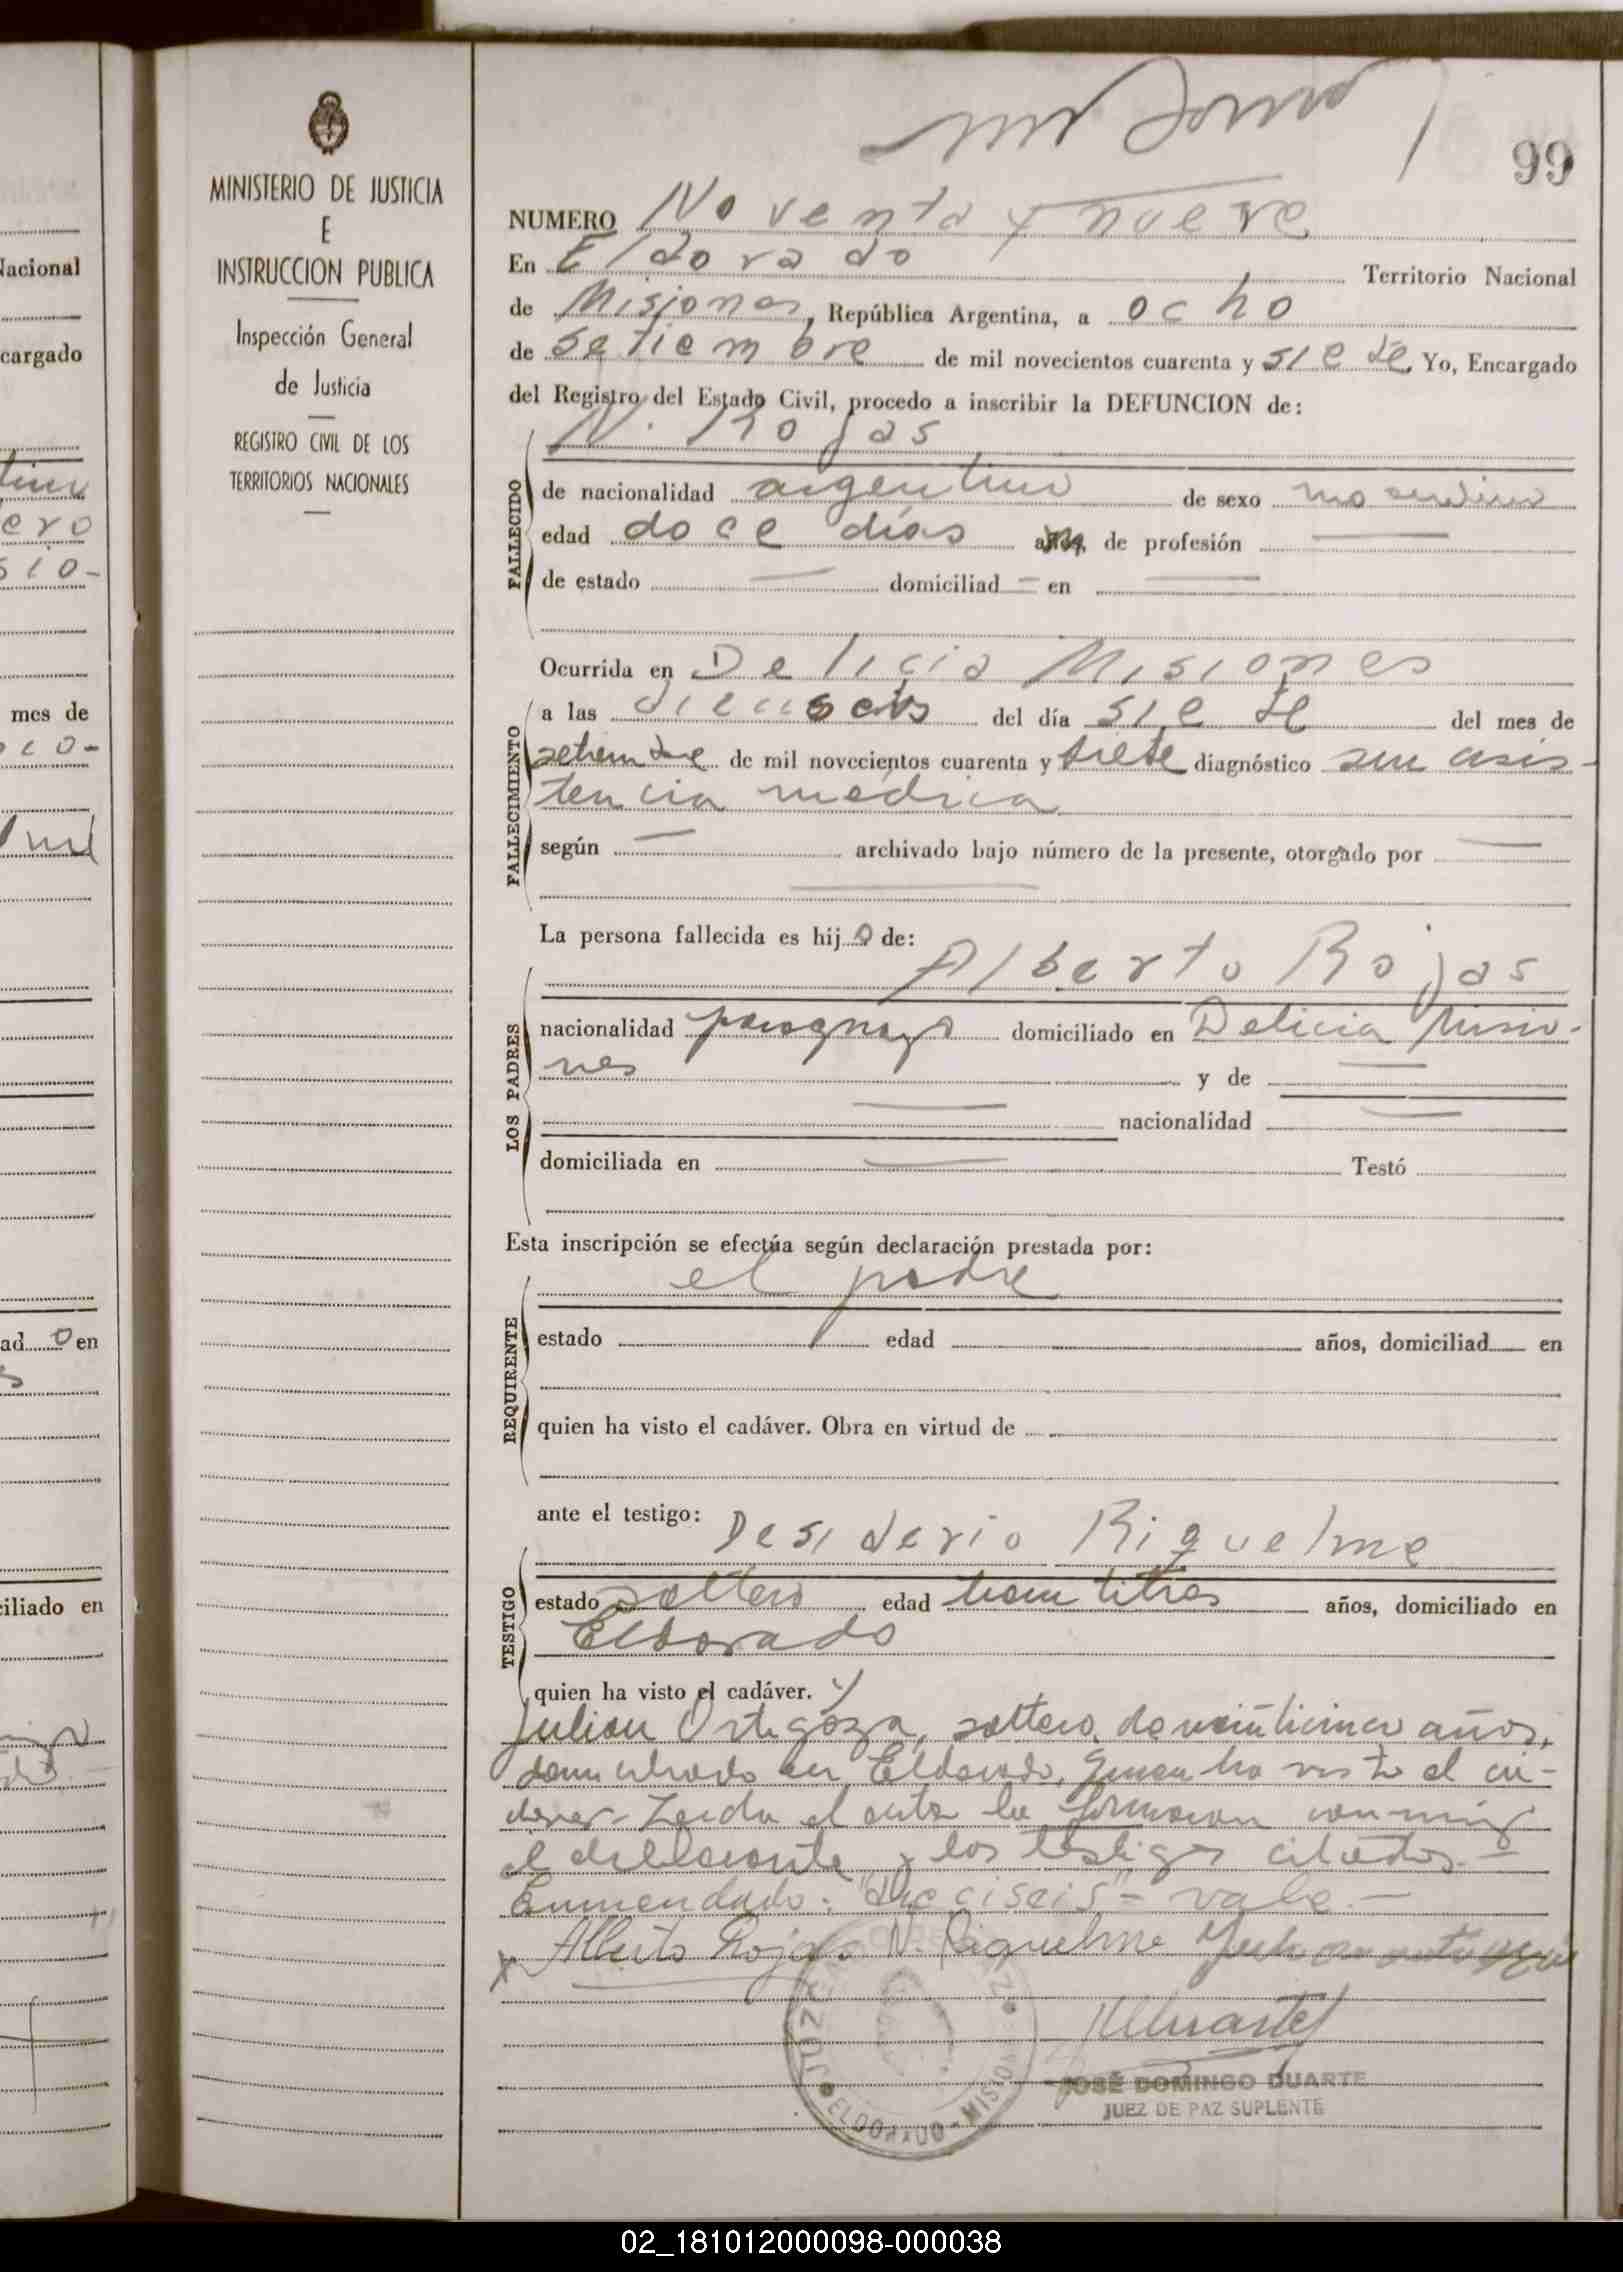 99
MINISTERIO DE JUSTICIA
E
INSTRUCCION PUBLICA
Inspección General
de Justicia
REGISTRO CIVIL DE LOS
TERRITORIOS NACIONALES
NUMERO Noventa y nueve
En Eldorado Territorio Nacional
de Misiones, República Argentina, a ocho
de setiembre de mil novecientos cuarenta y siete. Yo, Encargado
del Registro del Estado Civil, procedo a inscribir la DEFUNCION de:
N. Rojas
FALLECIDO
de nacionalidad argentino de sexo masculino
edad doce días años, de profesión —
de estado — domiciliad — en —
Ocurrida en Delicia Misiones
FALLECIMIENTO
a las dieciseis del día siete del mes de
setiembre de mil novecientos cuarenta y siete diagnóstico sin asis-
tencia médica
según — archivado bajo número de la presente, otorgado por —
La persona fallecida es hijo de:
Alberto Rojas
LOS PADRES
nacionalidad paraguayo domiciliado en Delicia Misio-
nes y de —
nacionalidad —
domiciliada en — Testó
Esta inscripción se efectúa según declaración prestada por:
el padre
REQUIRENTE
estado edad años, domiciliad en
quien ha visto el cadáver. Obra en virtud de
ante el testigo:
Desiderio Riquelme
TESTIGO
estado soltero edad treintitres años, domiciliado en
Eldorado
quien ha visto el cadáver. y
Julian Ortigoza, soltero, de veinticinco años,
domiciliado en Eldorado, quien ha visto el ca-
daver. Leida el acta la firmaron conmigo
el declarante y los testigos citados.—
Enmendado: "dieciseis"= vale.—
Alberto Rojas D. Riquelme
JOSÉ DOMINGO DUARTE
JUEZ DE PAZ SUPLENTE
JUZ ELDORADO - MISION
Nacional
cargado
mes de
ad o en
ciliado en
02_181012000098-000038